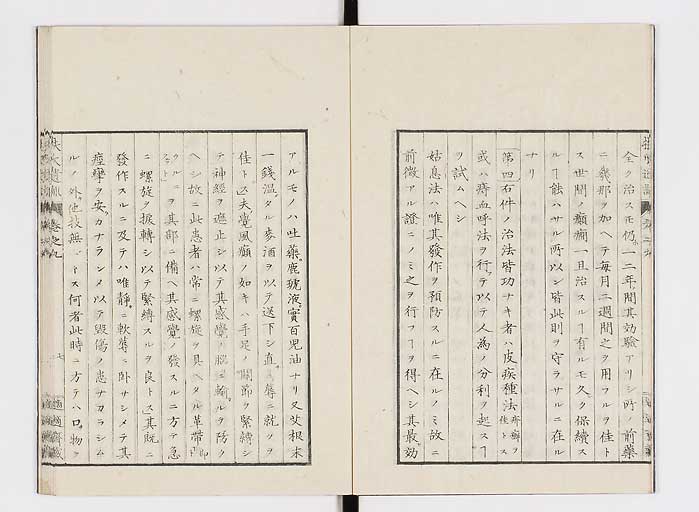 全ク治スモ仍一二年間其効驗アリシ所ノ前藥
ニ幾那ヲ加ヘテ毎月二週間之ヲ用フルヲ佳ト
ス世間ノ癲癇一旦治スルヿ有ルモ久ク保續ス
ルヿ能ハサル所以ン皆此則ヲ守ラサルニ在ル
ナリ
第四右件ノ治法皆功ナキ者ハ皮疾種法疥癬ヲ佳トス
或ハ瘠血呼法ヲ行テ以テ人為ノ分利ヲ起スヿ
ヲ試ムヘシ
姑息法ハ唯其發作ヲ預防スルニ在ルノミ故ニ
前徴アル證ニノミ之ヲ行フヿヲ得ヘシ其最効
アルモノハ吐藥鹿琥液實百児油ナリ又艾根末
一錢温タル麥酒ヲ以テ送下シ直ニ蓐ニ就クヲ
佳トス夫覺風癲ノ如キハ手足ノ關節ヲ緊縛シ
テ神經ヲ遮止シ以テ其感覺ノ腦ニ輸ルヲ防ク
ヘシ故ニ此患者ハ常ニ螺旋ヲ具ヘタル革帶
ヲ其部ニ備ヘ其感覺ノ發スルニ方テ急
ニ螺旋ヲ捩轉シ以テ緊縛スルヲ良トス其既ニ
發作スルニ及テハ唯靜ニ軟蓐ニ臥サシメテ其
痙攣ヲ安カナラシメ以テ毀傷ノ患ナカラシム
ルノ外他技無シトス何者此時ニ方テハ口物ヲ
扶氏遺訓 卷之九
七